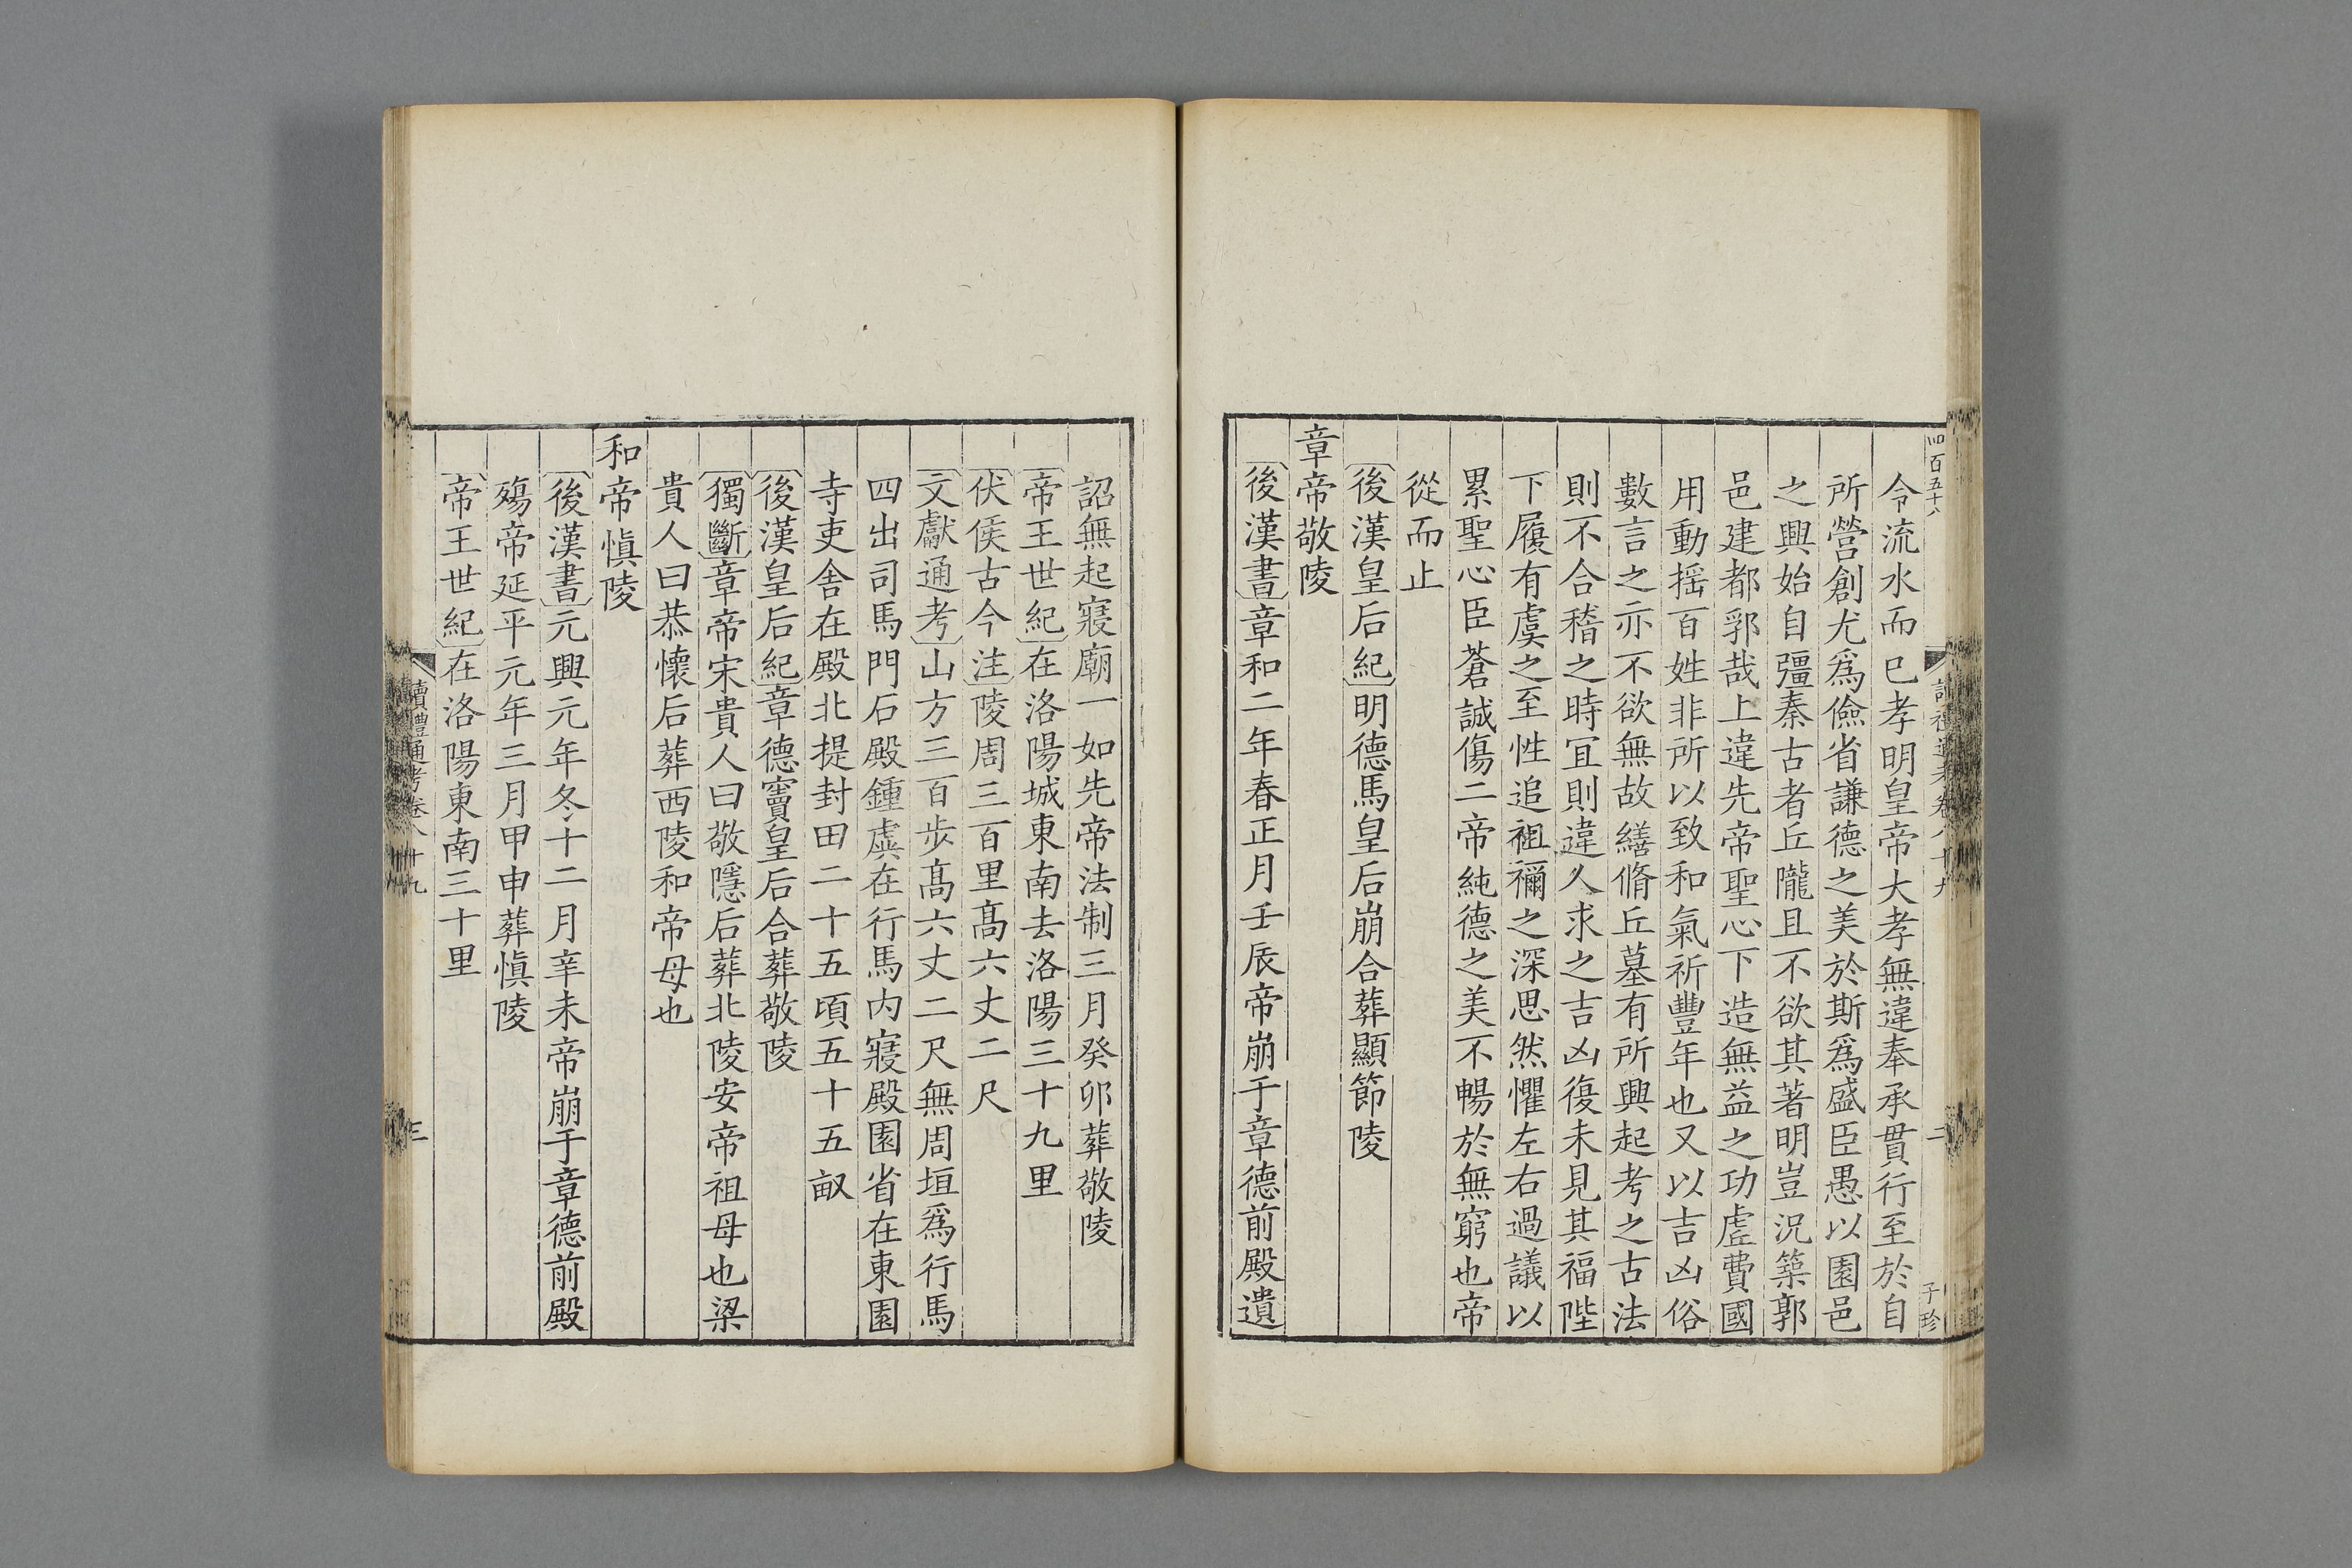 四百五十八
讀禮通考卷八十九
二
子珍
令流水而已孝明皇帝大孝無違奉承貫行至於自
所營創尤爲儉省謙德之美於斯爲盛臣愚以園邑
之興始自彊秦古者丘隴且不欲其著明豈況築郭
邑建都郛哉上違先帝聖心下造無益之功虛費國
用動揺百姓非所以致和氣祈豐年也又以吉凶俗
數言之亦不欲無故繕脩丘墓有所興起考之古法
則不合稽之時宜則違人求之吉凶復未見其福陛
下履有虞之至性追祖禰之深思然懼左右過議以
累聖心臣蒼誠傷二帝純德之美不暢於無窮也帝
從而止
〔後漢皇后紀〕明德馬皇后崩合葬顯節陵
章帝敬陵
〔後漢書〕章和二年春正月壬辰帝崩于章德前殿遺
詔無起寢廟一如先帝法制三月癸卯葬敬陵
〔帝王世紀〕在洛陽城東南去洛陽三十九里
〔伏侯古今注〕陵周三百里髙六丈二尺
〔文獻通考〕山方三百步髙六丈二尺無周垣爲行馬
四出司馬門石殿鍾虡在行馬内寢殿園省在東園
寺吏舍在殿北提封田二十五頃五十五畝
〔後漢皇后紀〕章德竇皇后合葬敬陵
〔獨斷〕章帝宋貴人曰敬隱后葬北陵安帝祖母也梁
貴人曰恭懷后葬西陵和帝母也
和帝愼陵
〔後漢書〕元興元年冬十二月辛未帝崩于章德前殿
殤帝延平元年三月甲申葬愼陵
〔帝王世紀〕在洛陽東南三十里
讀禮通考卷八十九
三